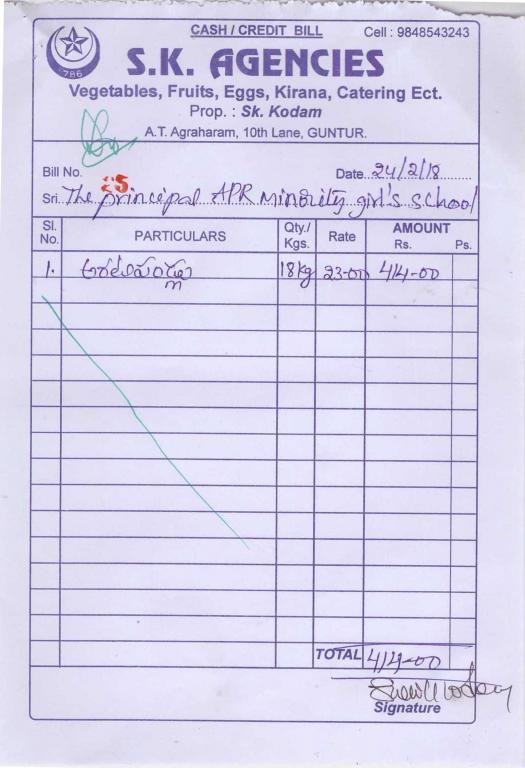 CASH / CREDIT BILL Cell : 9848543243
786
S.K. AGENCIES
Vegetables, Fruits, Eggs, Kirana, Catering Ect.
Prop. : Sk. Kodam
A.T. Agraharam, 10th Lane, GUNTUR.
Bill No. Date. 24/2/18
25
Sri. The principal APR minority girl's school
Sl. No. PARTICULARS Qty./ Kgs. Rate AMOUNT Rs. Ps.
1. 18kg 23-00 414-00
TOTAL 414-00
Signature